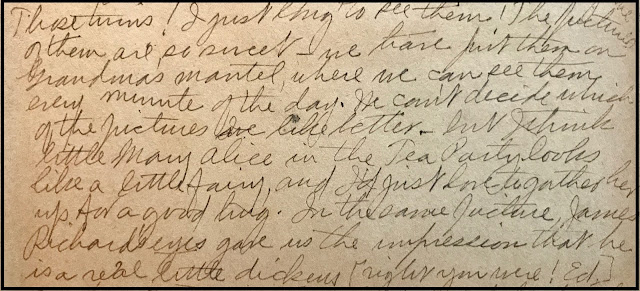 Those twins! I just long to see them! The pictures
of them are so sweet - we have put them on
Grandma's mantel, where we can see them
every minute of the day. We can't decide which
of the pictures we like better - but I think
little Mary Alice in the Tea Party looks
like a little fairy, and I'd just love to gather her
up for a good hug. In the same picture, James
Richard's eyes gave us the impression that he
is a real little dickens [right you were! Ed.]